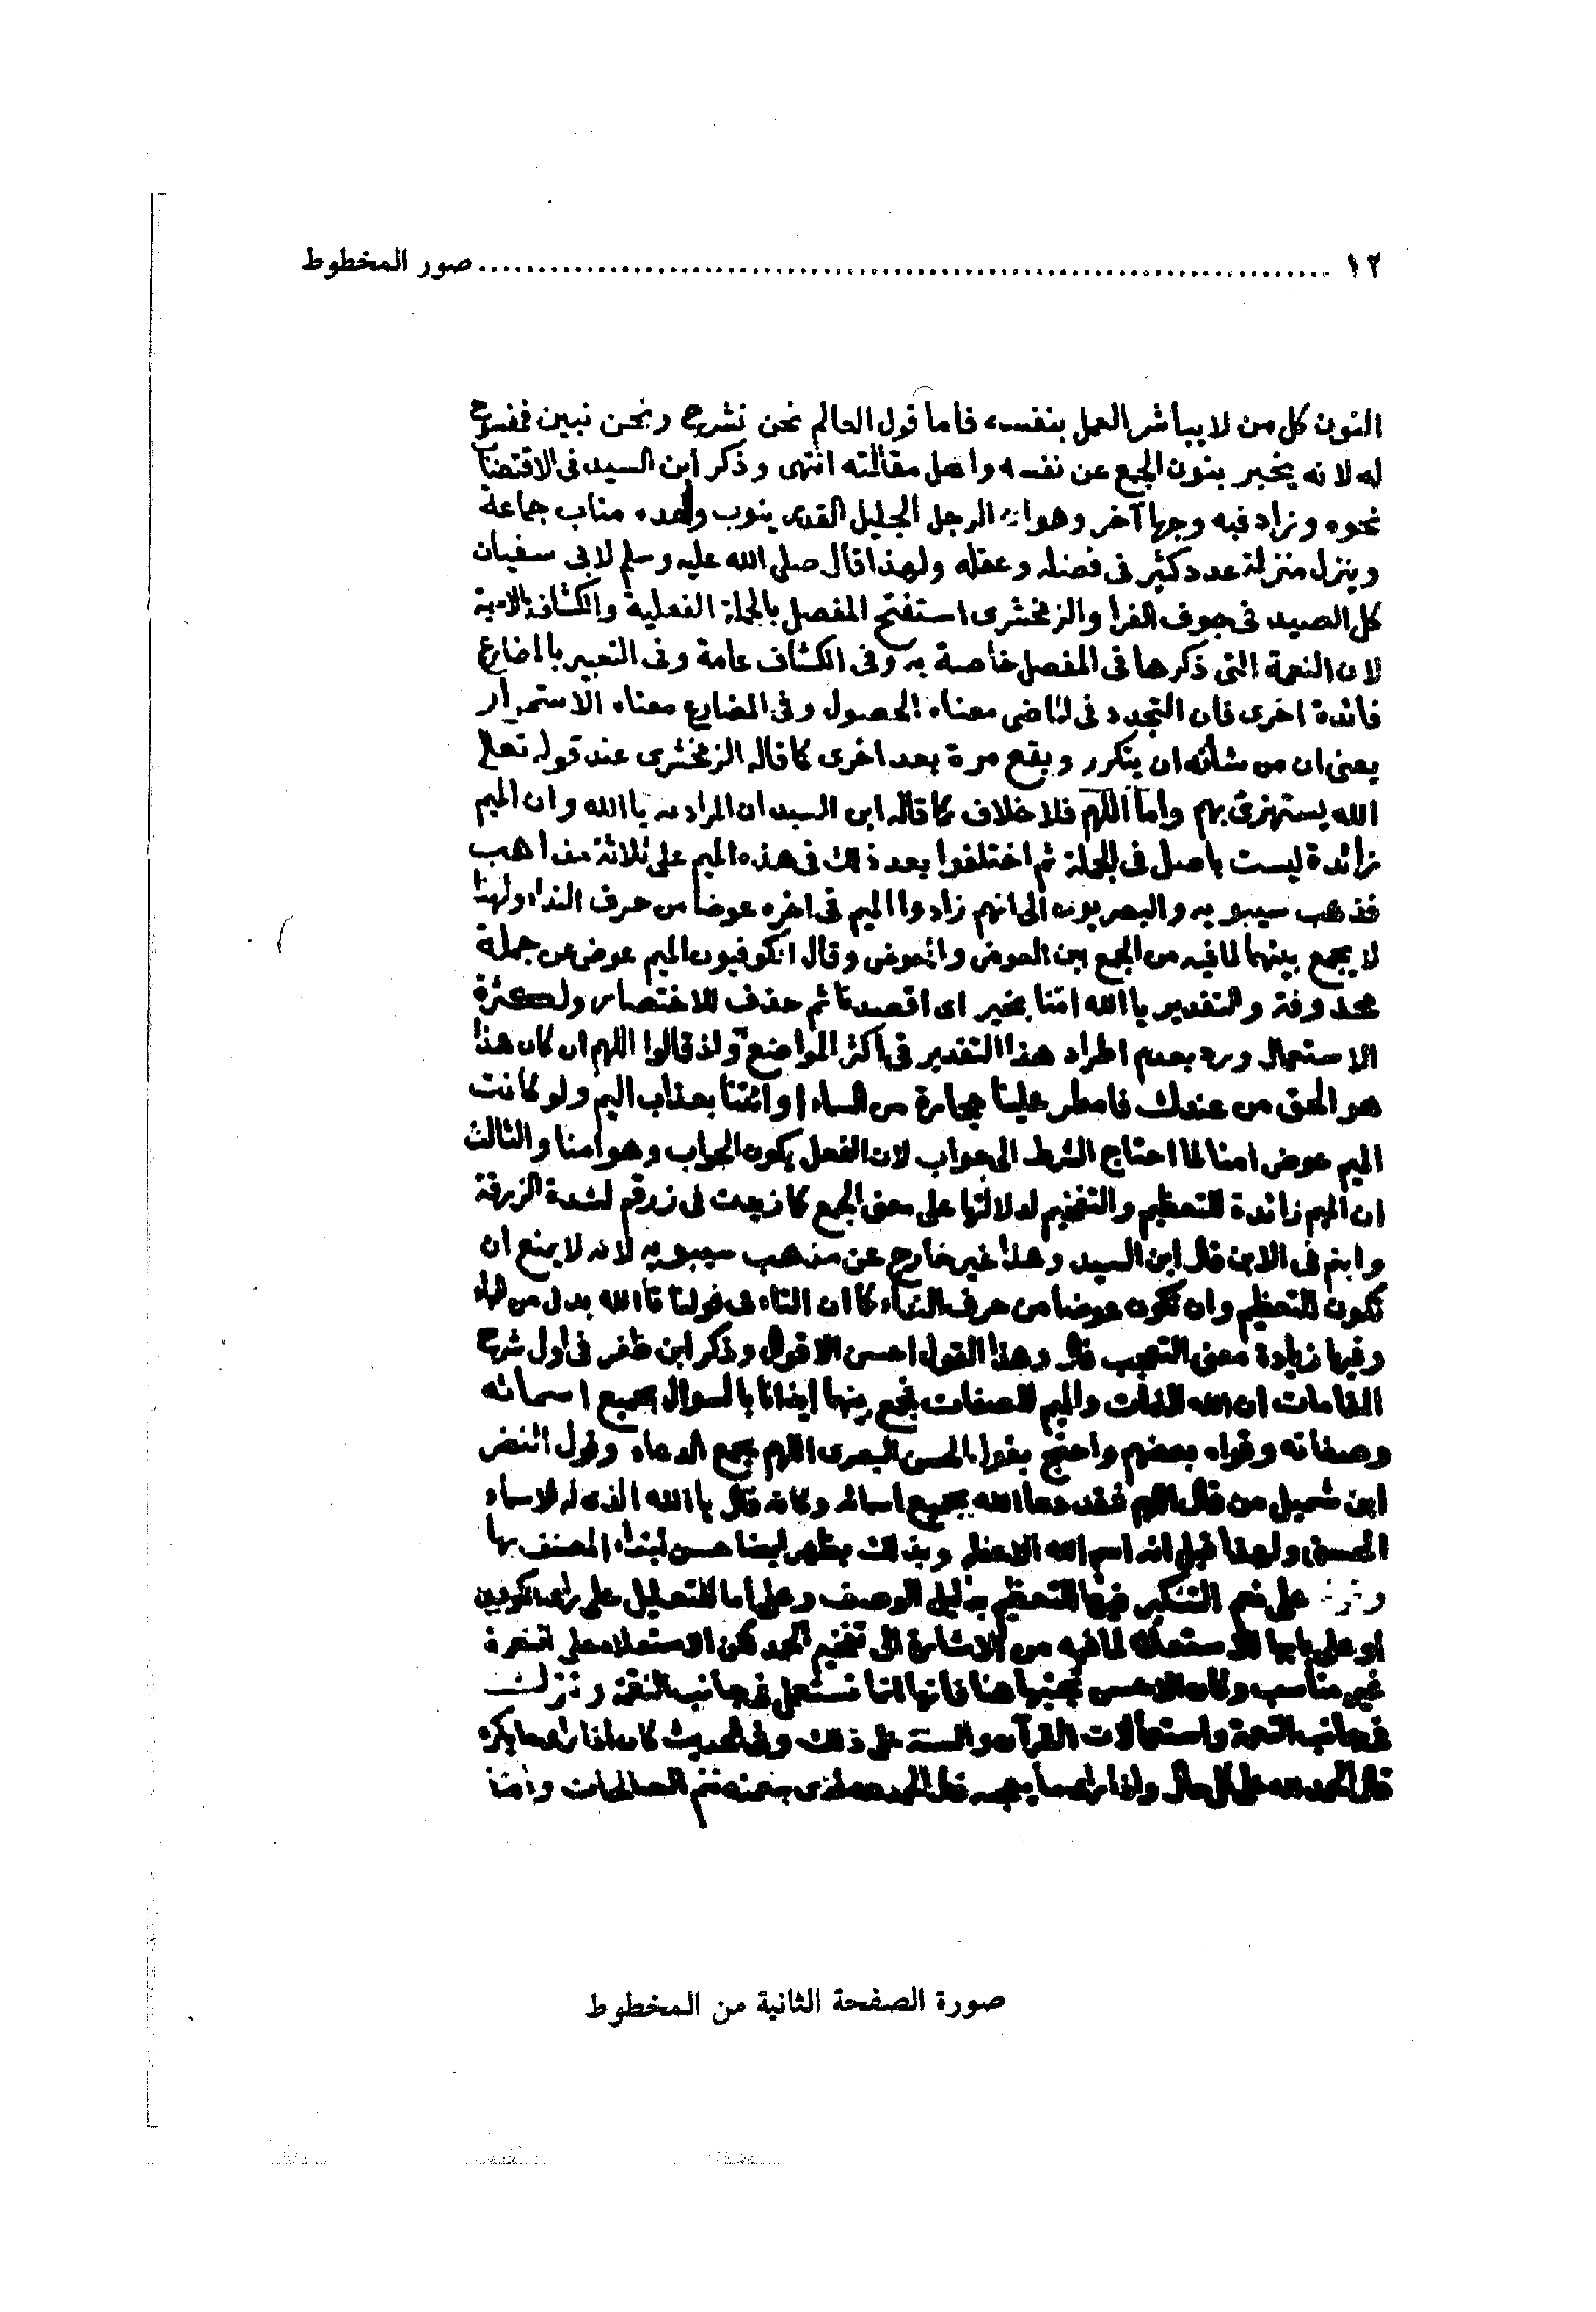 ١٢ ........................ صور المخطوط
النون كل من لا يباشر العمل بنفسه فاما قول العالم نحن نشرح ونحن نبين ففسح
له لانه يخبر بنون الجمع عن نفسه واهل مقالته انتهى وذكر ابن السيد فى الاقتضاب
نحوه وزاد فيه وجها آخر وهوان الرجل الجليل القدر ينوب وحده مناب جماعة
وينزل منزلة عدد كثير فى فضله وعقله ولهذا قال صلى الله عليه وسلم لابى سفيان
كل الصيد فى جوف الفرا والزمخشرى استفتح المفصل بالجملة الفعلية والكشاف بالاسمية
لان النعمة التى ذكرها فى المفصل خاصة به وفى الكشاف عامة وفى التعبير بالمضارع
فائدة اخرى فان التجدد فى الماضى معناه الحصول وفى المضارع معناه الاستمرار
يعنى ان من شأنه ان يتكرر ويقع مرة بعد اخرى كما قاله الزمخشرى عند قوله تعالى
الله يستهزئ بهم واما اللهم فلا خلاف كما قاله ابن السيد ان المراد به يا الله وان الميم
زائدة ليست باصل فى الجملة ثم اختلفوا بعد ذلك فى هذه الميم على ثلاثة مذاهب
فذهب سيبويه والبصريون الى انهم زادوا الميم فى اخره عوضا من حرف النداء ولهذا
لا يجمع بينهما لما فيه من الجمع بين العوض والمعوض وقال الكوفيون الميم عوض عن جملة
محذوفة والتقدير يا الله امنا بخير اى اقصدنا ثم حذف للاختصار ولكثرة
الاستعمال ورد بعدم اطراد هذا التقدير فى اكثر المواضع واذ قالوا اللهم ان كان هذا
هو الحق من عندك فامطر علينا حجارة من السماء او ائتنا بعذاب اليم ولو كانت
الميم عوض امنا لما احتاج الشرط الى جواب لان الفعل يكون الجواب وهو امنا والثالث
ان الميم زائدة للتعظيم والتفخيم لدلالتها على معنى الجمع كما زيدت فى زرقم لشدة الزرقة
وابنم فى الابن قال ابن السيد وهذا غير خارج عن مذهب سيبويه لانه لا يمنع ان
تكون للتعظيم وان تكون عوضا من حرف النداء كما ان التاء فى قولنا تالله بدل من الباء
وفيها زيادة معنى التعجب قال وهذا القول احسن الاقوال وذكر ابن ظفر فى اول شرح
المقامات ان الله للذات والميم للصفات فجمع بينهما ايذانا بالسوال بجميع اسمائه
وصفاته وقواه بعضهم واحتج بقول الحسن البصرى اللهم مجمع الدعاء وقول النضر
ابن شميل من قال اللهم فقد دعا الله بجميع اسمائه وكانه قال يا الله الذى له الاسماء
الحسنى ولهذا قيل انه اسم الله الاعظم وبذلك يظهر ايضا حسن ابتداء المصنف بها
على نعم التنكير فيها للتعظيم بدليل الوصف وعلى اما للتعليل على راى الكوفيين
او على بابها للاستعلاء لما فيه من الاشارة الى تفخيم الحمد لكن الاستعلاء على النعمة
غير مناسب وكان الاحسن تجنبها هنا فانها انما تستعمل فى جانب النقمة وتترك
فى جانب النعمة واستعمالات القرآن والسنة على ذلك وفى الحديث كان اذا راى ما يكره
قال الحمد لله على كل حال واذا راى ما يعجبه قال الحمد لله الذى بنعمته تتم الصالحات وامنا
صورة الصفحة الثانية من المخطوط